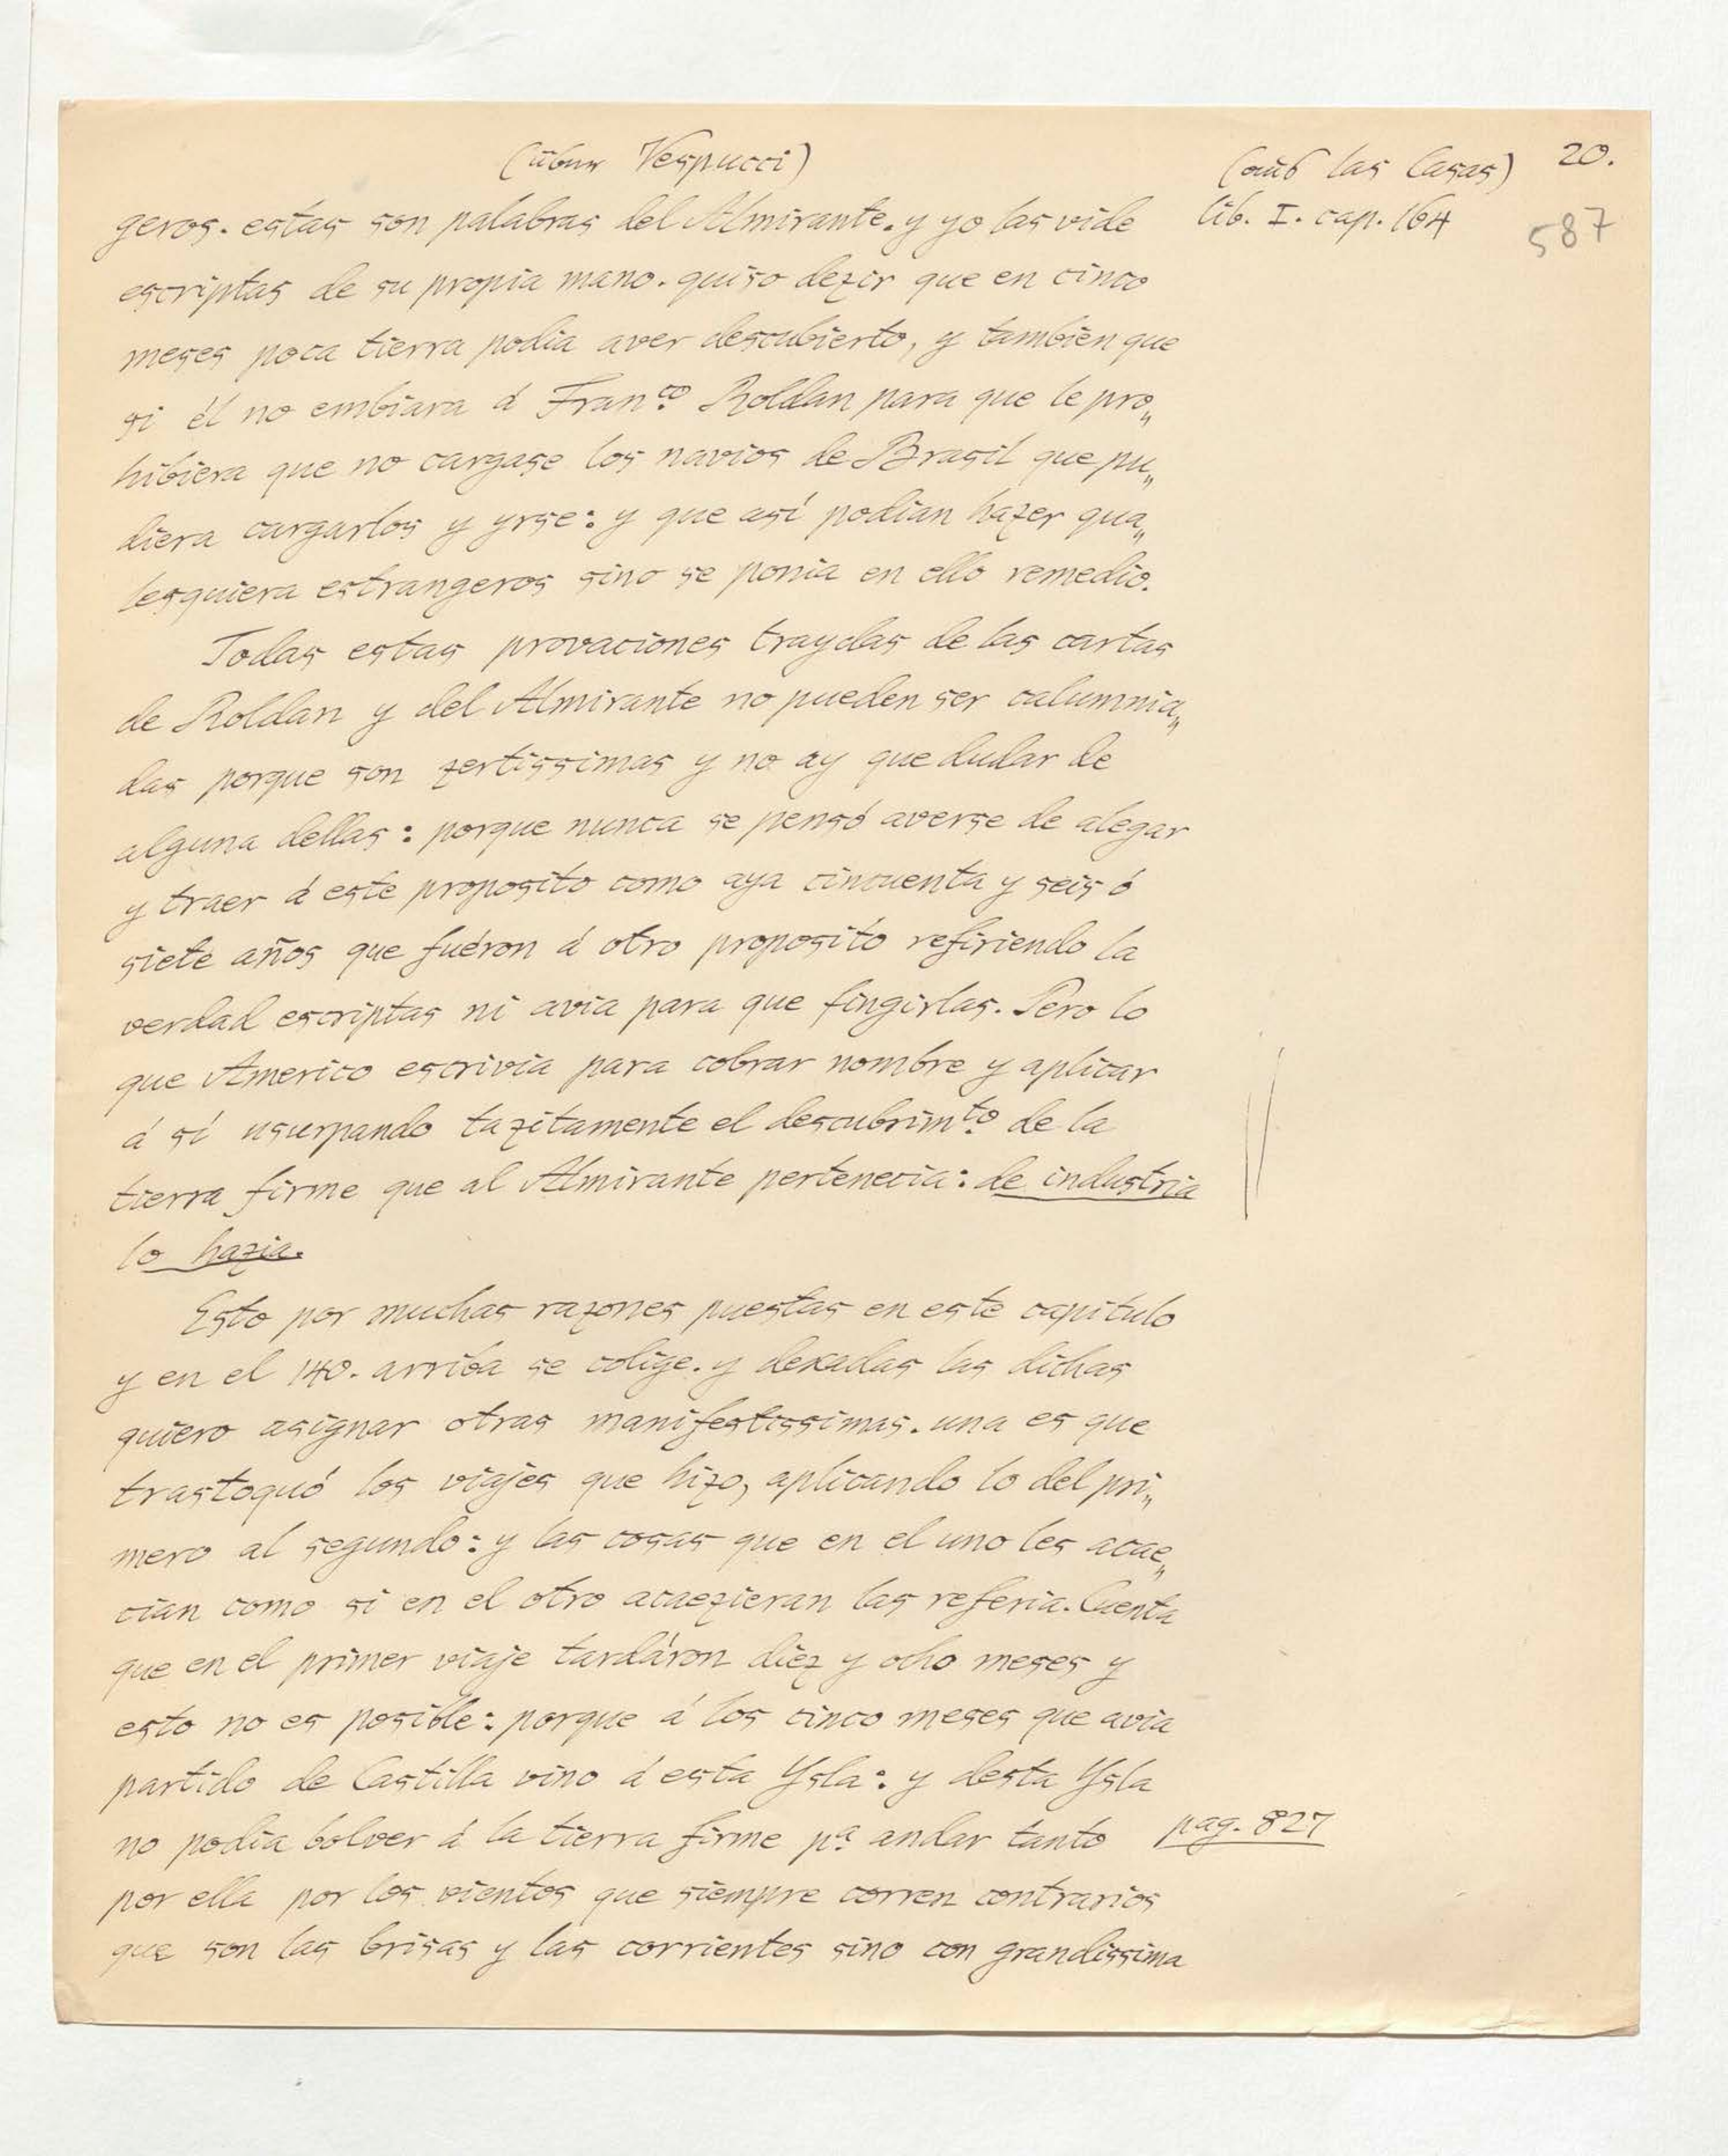 (über Vespucci)
(aus las Casas) 20.
geros. estas son palabras del Almirante. y yo las vide
lib. I. cap. 164
587
escriptas de su propia mano. quiso dezir que en cinco
meses poca tierra podia aver descubierto, y tambien que
si él no embiara á Fran.co Roldan para que le pro„
hibiera que no cargase los navios de Brasil que pu„
diera cargarlos y yrse: y que así podian hazer qua„
lesquiera estrangeros sino se ponia en ello remedio.
Todas estas provaciones traydas de las cartas
de Roldan y del Almirante no pueden ser calumnia„
das porque son zertissimas y no ay que dudar de
alguna dellas: porque nunca se pensó averse de alegar
y traer á este proposito como aya cincuenta y seis ó
siete años que fuéron á otro proposito refiriendo la
verdad escriptas ni avia para que fingirlas. Pero lo
que Americo escrivia para cobrar nombre y aplicar
á sí usurpando tazitamente el descubrim.to de la
tierra firme que al Almirante pertenecia: de industria
lo hazia.
Esto por muchas razones puestas en este capitulo
y en el 140. arriba se colige. y dexadas las dichas
quiero asignar otras manifestissimas. una es que
trastoquó los viajes que hizo, aplicando lo del pri„
mero al segundo: y las cosas que en el uno les acae„
cian como si en el otro acaezieran las referia. Cuenta
que en el primer viaje tardáron diez y ocho meses y
esto no es posible: porque á los cinco meses que avia
partido de Castilla vino á esta Ysla: y desta Ysla
no podia bolver á la tierra firme p.a andar tanto
pag. 827
por ella por los vientos que siempre corren contrarios
que son las brisas y las corrientes sino con grandissima